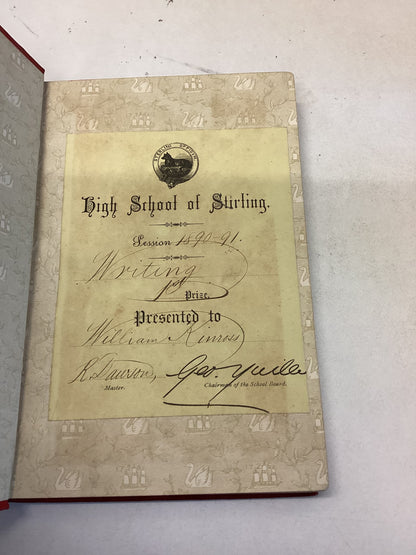 High School of Stirling.
Session 1890-91.
Writing
1st
Prize.
Presented to
William Kinross
R. Dawson,
Master.
Geo.
Chairman of the School Board.